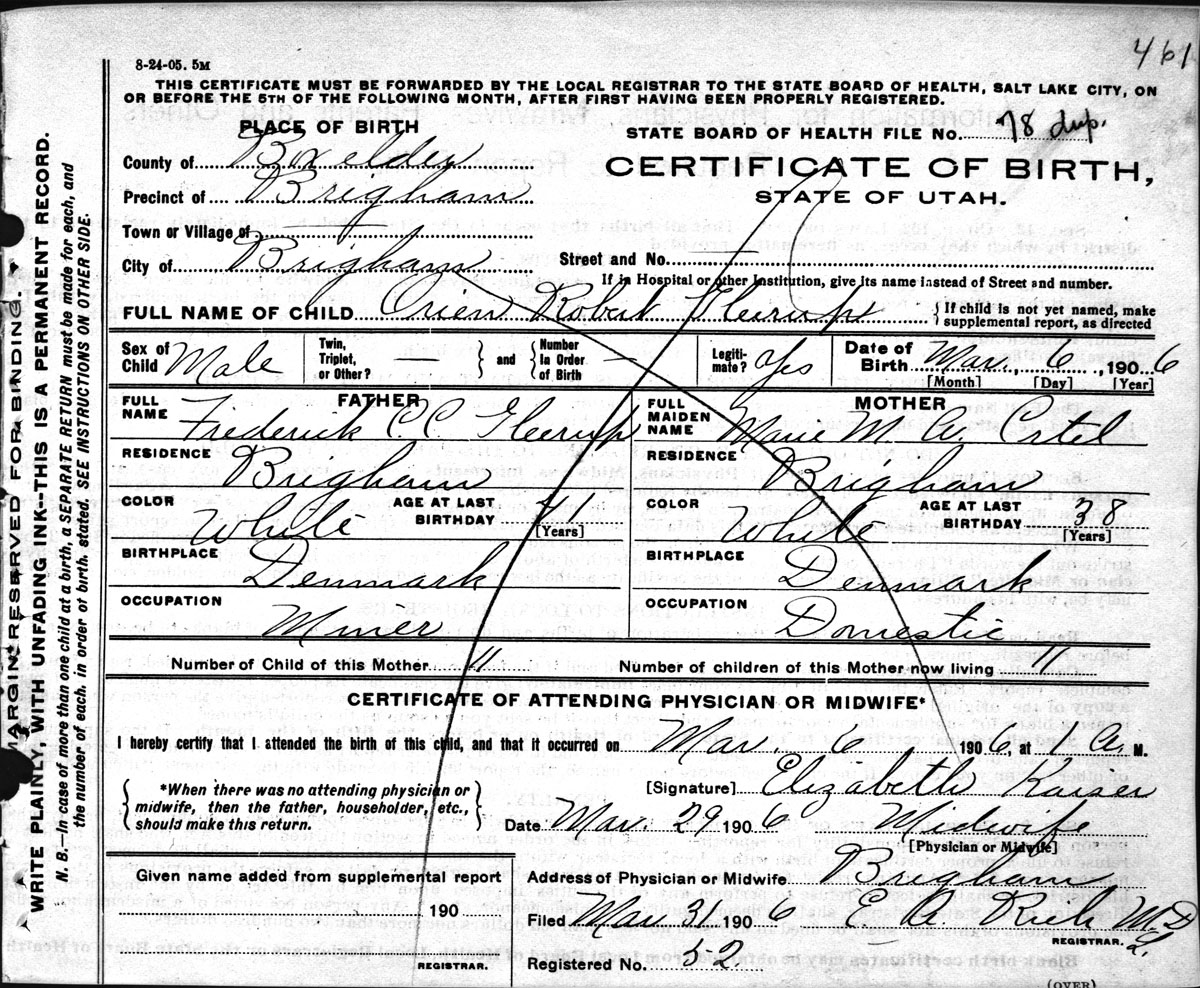 461
8-24-05. 5M
THIS CERTIFICATE MUST BE FORWARDED BY THE LOCAL REGISTRAR TO THE STATE BOARD OF HEALTH, SALT LAKE CITY, ON
OR BEFORE THE 5TH OF THE FOLLOWING MONTH, AFTER FIRST HAVING BEEN PROPERLY REGISTERED.
PLACE OF BIRTH
STATE BOARD OF HEALTH FILE No. 78 dup.
County of Box elder
CERTIFICATE OF BIRTH,
Precinct of Brigham
STATE OF UTAH.
Town or Village of
City of Brigham
Street and No.
If in Hospital or other Institution, give its name instead of Street and number.
FULL NAME OF CHILD Orien Robert Gleerup
{If child is not yet named, make
supplemental report, as directed
Sex of Child Male
Twin, Triplet, or Other?
and
Number In Order of Birth —
Legiti-mate? Yes
Date of Birth Mar. 6, 1906
[Month] [Day] [Year]
FATHER
FULL NAME Frederick C. C. Gleerup
RESIDENCE Brigham
COLOR White
AGE AT LAST BIRTHDAY 41
[Years]
BIRTHPLACE Denmark
OCCUPATION Miner
MOTHER
FULL MAIDEN NAME Marie M. A.
RESIDENCE Brigham
COLOR White
AGE AT LAST BIRTHDAY 38
[Years]
BIRTHPLACE Denmark
OCCUPATION Domestic
Number of Child of this Mother 11
Number of children of this Mother now living 11
CERTIFICATE OF ATTENDING PHYSICIAN OR MIDWIFE*
I hereby certify that I attended the birth of this child, and that it occurred on Mar. 6, 1906, at 1 A. M.
*When there was no attending physician or
midwife, then the father, householder, etc.,
should make this return.
[Signature] Elizabeth Kaiser
Date Mar. 29 1906 Midwife
[Physician or Midwife]
Given name added from supplemental report
190
REGISTRAR.
Address of Physician or Midwife Brigham
Filed Mar 31 1906 M.D.
REGISTRAR.
Registered No. 52.
(OVER)
MARGIN RESERVED FOR BINDING.
WRITE PLAINLY, WITH UNFADING INK--THIS IS A PERMANENT RECORD.
N. B.—In case of more than one child at a birth, a SEPARATE RETURN must be made for each, and
the number of each, in order of birth, stated. SEE INSTRUCTIONS ON OTHER SIDE.